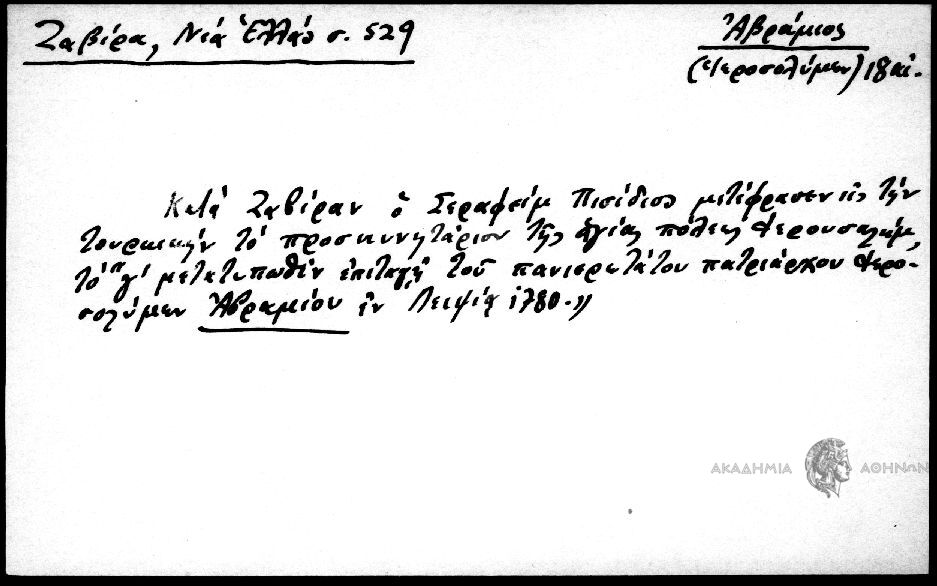 Ζαβίρα, Νέα Ἑλλάς σ. 529
Ἀβράμιος
(Ἱεροσολύμων) 18 αἰ.
Κατὰ Ζαβίραν ὁ Σεραφεὶμ Πισίδιος μετέφρασεν εἰς τὴν
τουρκικὴν τὸ προσκυνητάριον τῆς ἁγίας πόλεως Ἱερουσαλήμ,
τὸ γ' μετατυπωθὲν ἐπιταγῇ τοῦ πανιερωτάτου πατριάρχου Ἱερο-
σολύμων Ἀβραμίου ἐν Λειψίᾳ 1780.»
ΑΚΑΔΗΜΙΑ ΑΘΗΝΩΝ